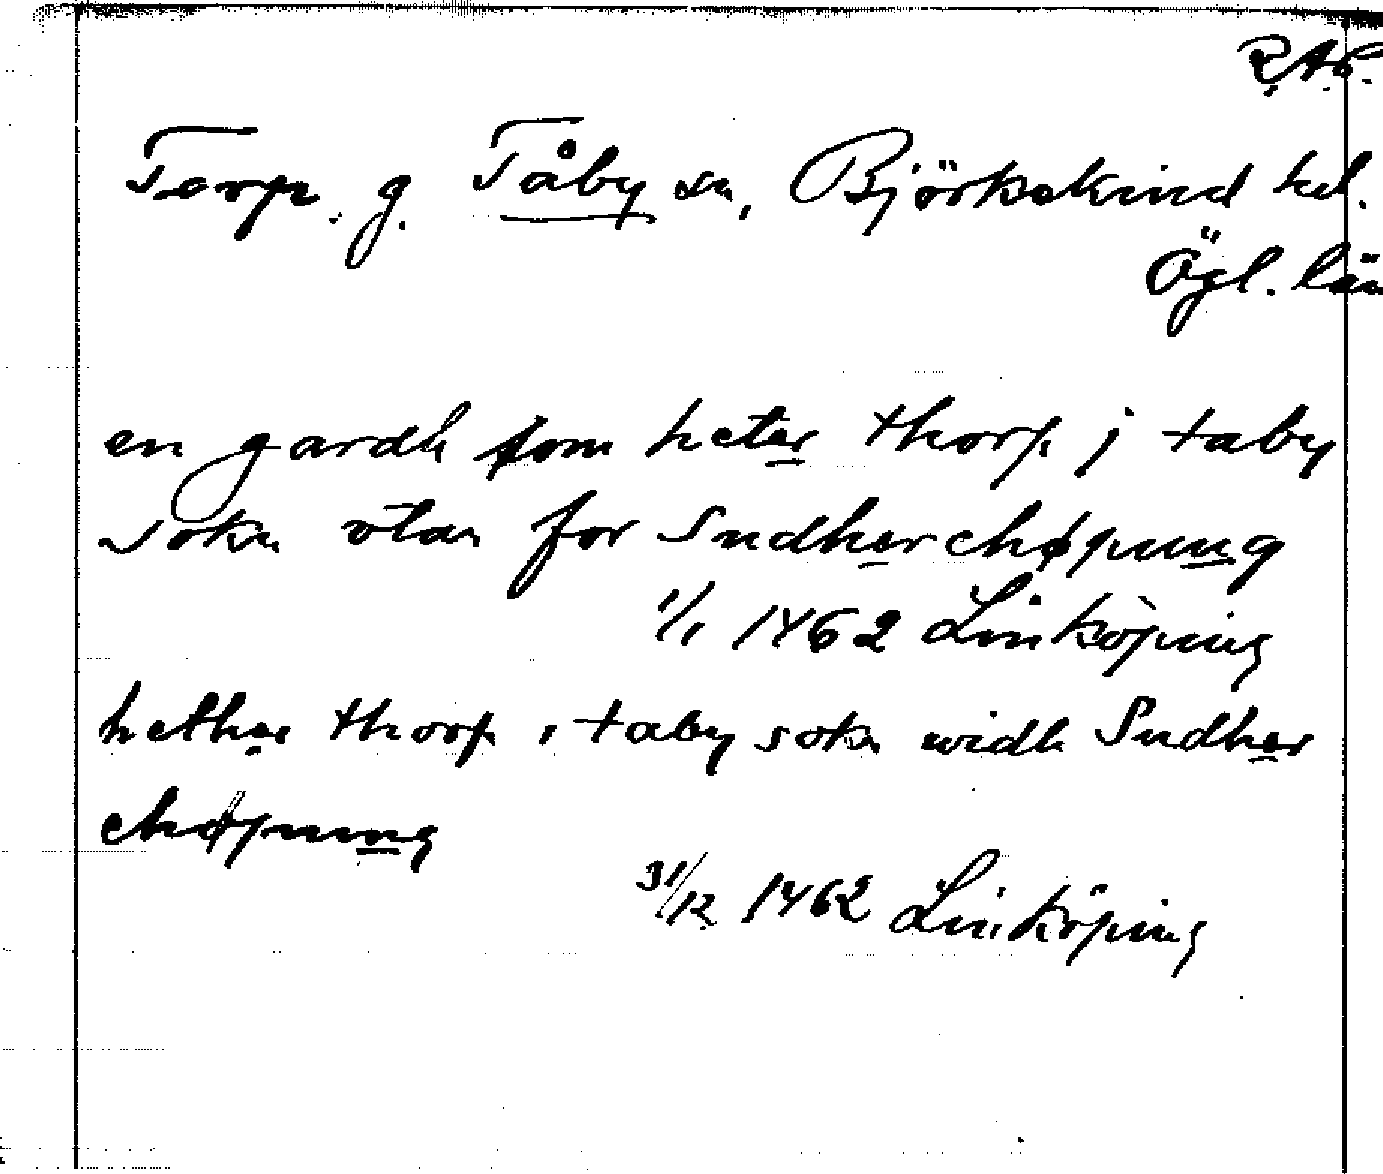 R.A.P.
Torp. g. Tåby sn, Björkekind hd.
Ögl. län
en gardh som heter thorp j taby
sokn vtan for Sudherchøpung
1/1 1462 Linköping
hether thorp i taby sokn widh Sudher
chøpung
31/12 1462 Linköping